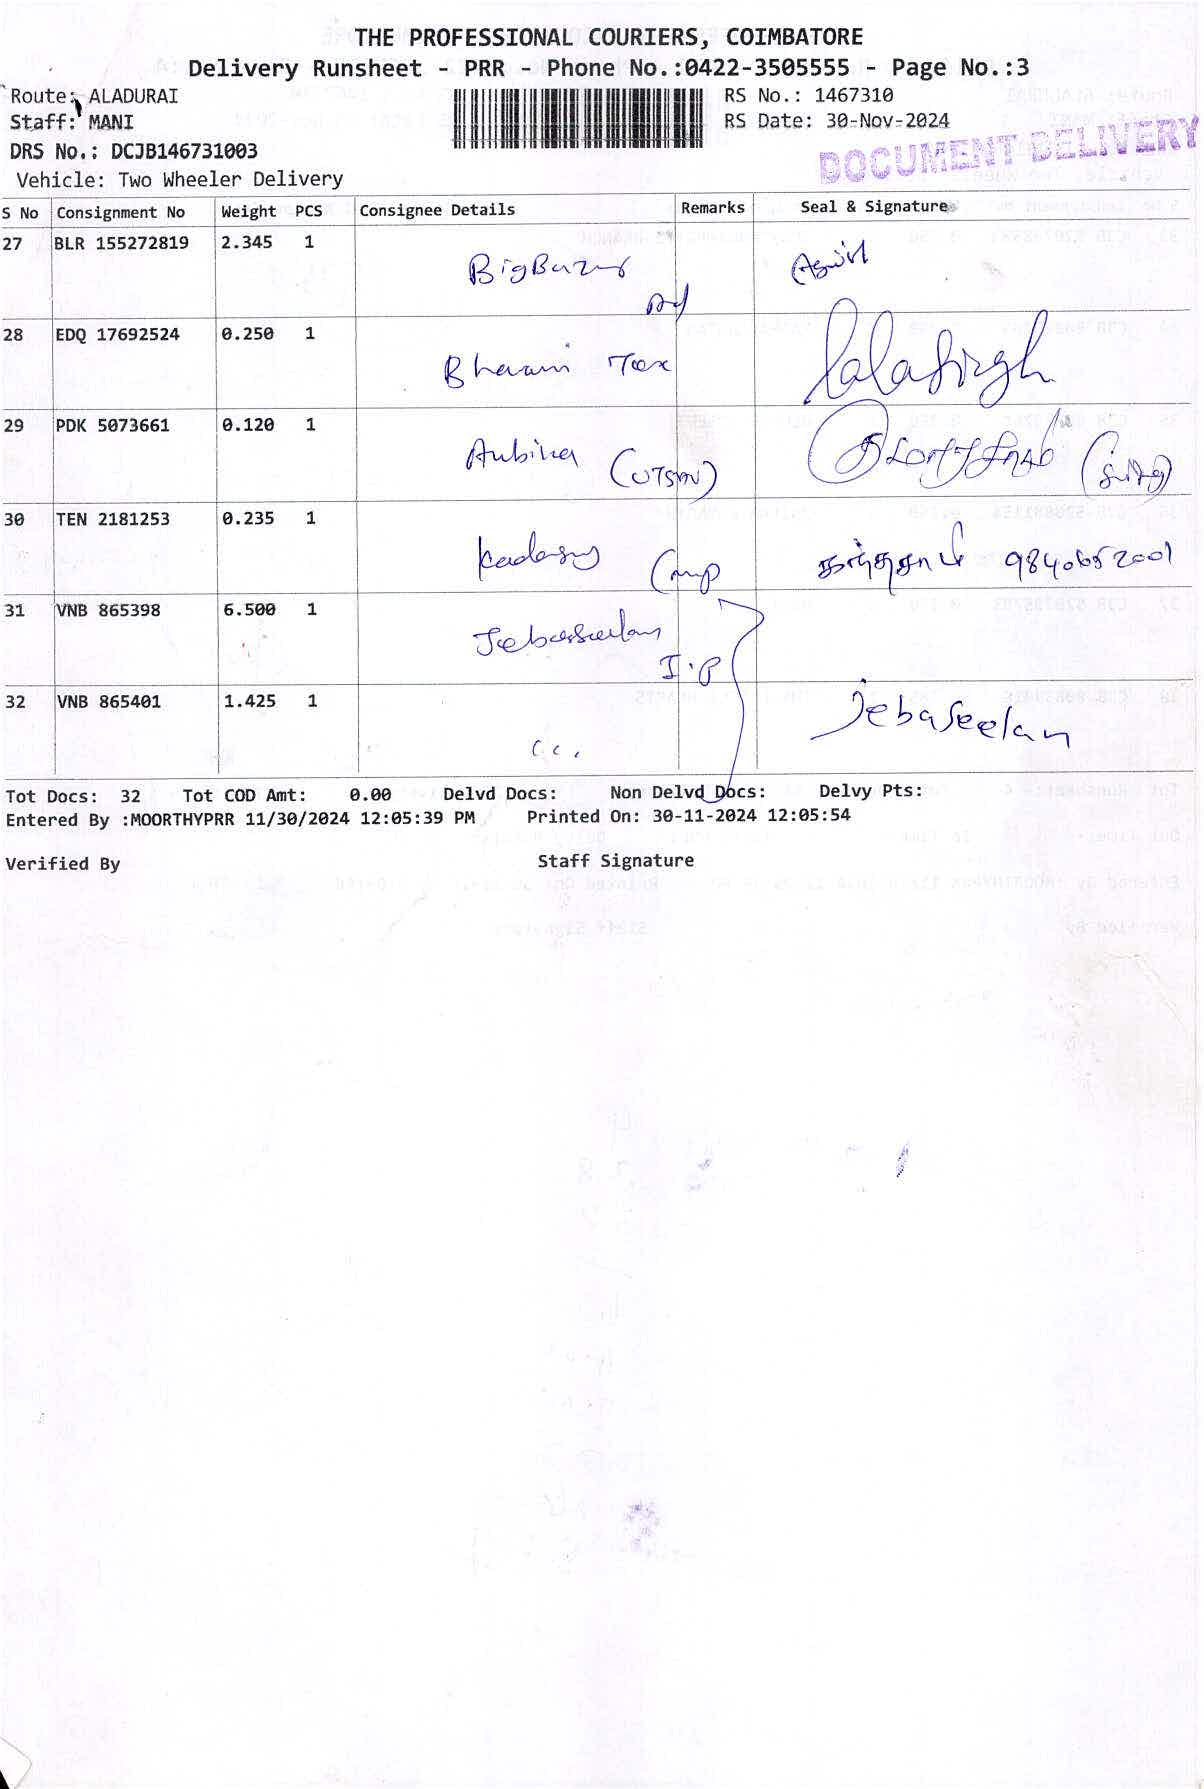 THE PROFESSIONAL COURIERS, COIMBATORE
Delivery Runsheet - PRR - Phone No.:0422-3505555 - Page No.:3
Route: ALADURAI RS No.: 1467310
Staff: MANI RS Date: 30-Nov-2024
DRS No.: DCJB146731003
DOCUMENT DELIVERY
Vehicle: Two Wheeler Delivery
S No Consignment No Weight PCS Consignee Details Remarks Seal & Signature
27 BLR 155272819 2.345 1
28 EDQ 17692524 0.250 1
Lalasingh
29 PDK 5073661 0.120 1
30 TEN 2181253 0.235 1
31 VNB 865398 6.500 1
Jebaseelan
I.P
32 VNB 865401 1.425 1
Jebaseelan
Tot Docs: 32 Tot COD Amt: 0.00 Delvd Docs: Non Delvd Docs: Delvy Pts:
Entered By :MOORTHYPRR 11/30/2024 12:05:39 PM Printed On: 30-11-2024 12:05:54
Verified By Staff Signature